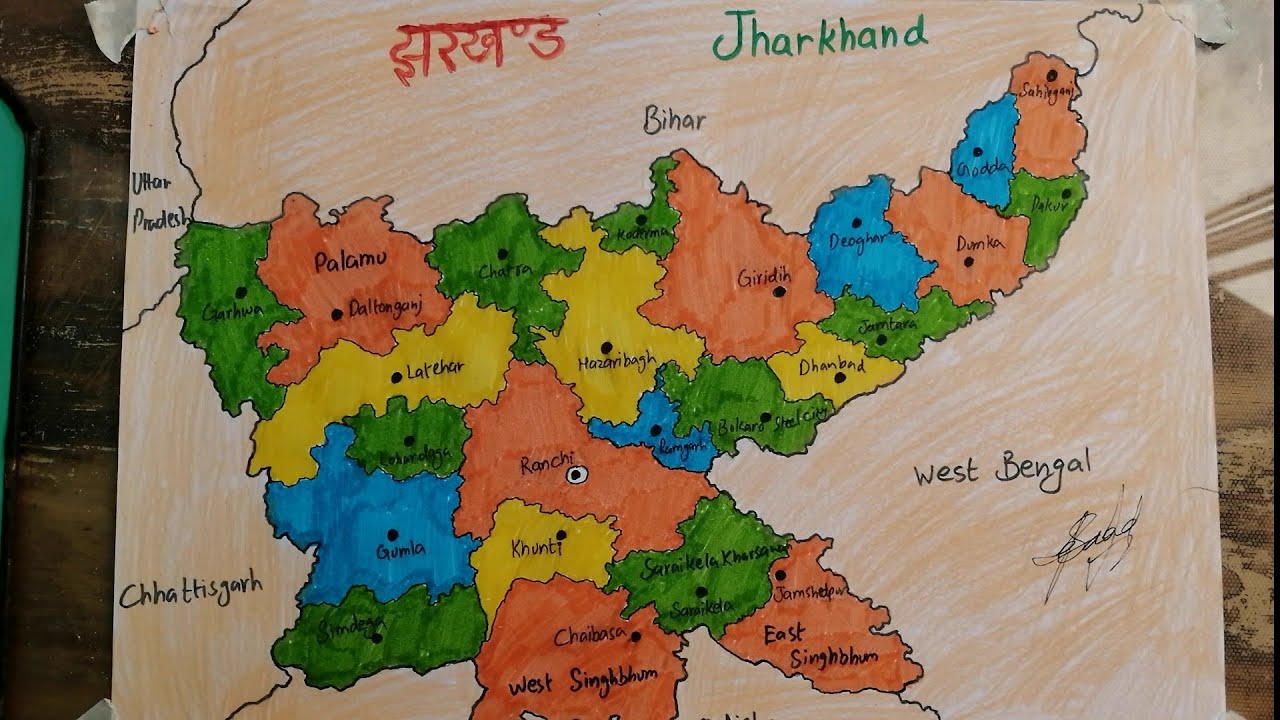 झरखण्ड
Jharkhand
Bihar
Sahibganj
Godda
Uttar
Pradesh
Pakur
Koderma
Deoghar
Dumka
Palamu
Chatra
Giridih
Garhwa
Daltonganj
Jamtara
Latehar
Hazaribagh
Dhanbad
Bokaro Steel City
Lohardaga
Ramgarh
Ranchi
West Bengal
Gumla
Khunti
Saraikela Kharsawan
Chhattisgarh
Jamshedpur
Saraikela
Simdega
Chaibasa
East
Singhbhum
West Singhbhum